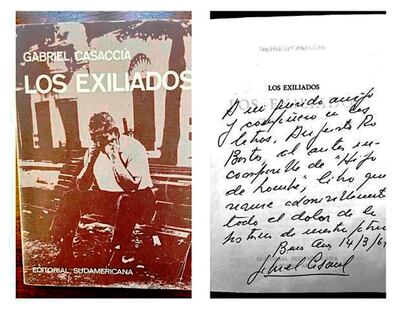 GABRIEL CASACCIA
LOS EXILIADOS
EDITORIAL SUDAMERICANA
LOS EXILIADOS
A mi querido amigo
y compañero en las
letras, Augusto Roa
Bastos, el autor in-
comparable de "Hijo
de hombre", libro que
resume admirablemente
todo el dolor de la
historia de nuestra patria
Buenos Aires 14/3/6